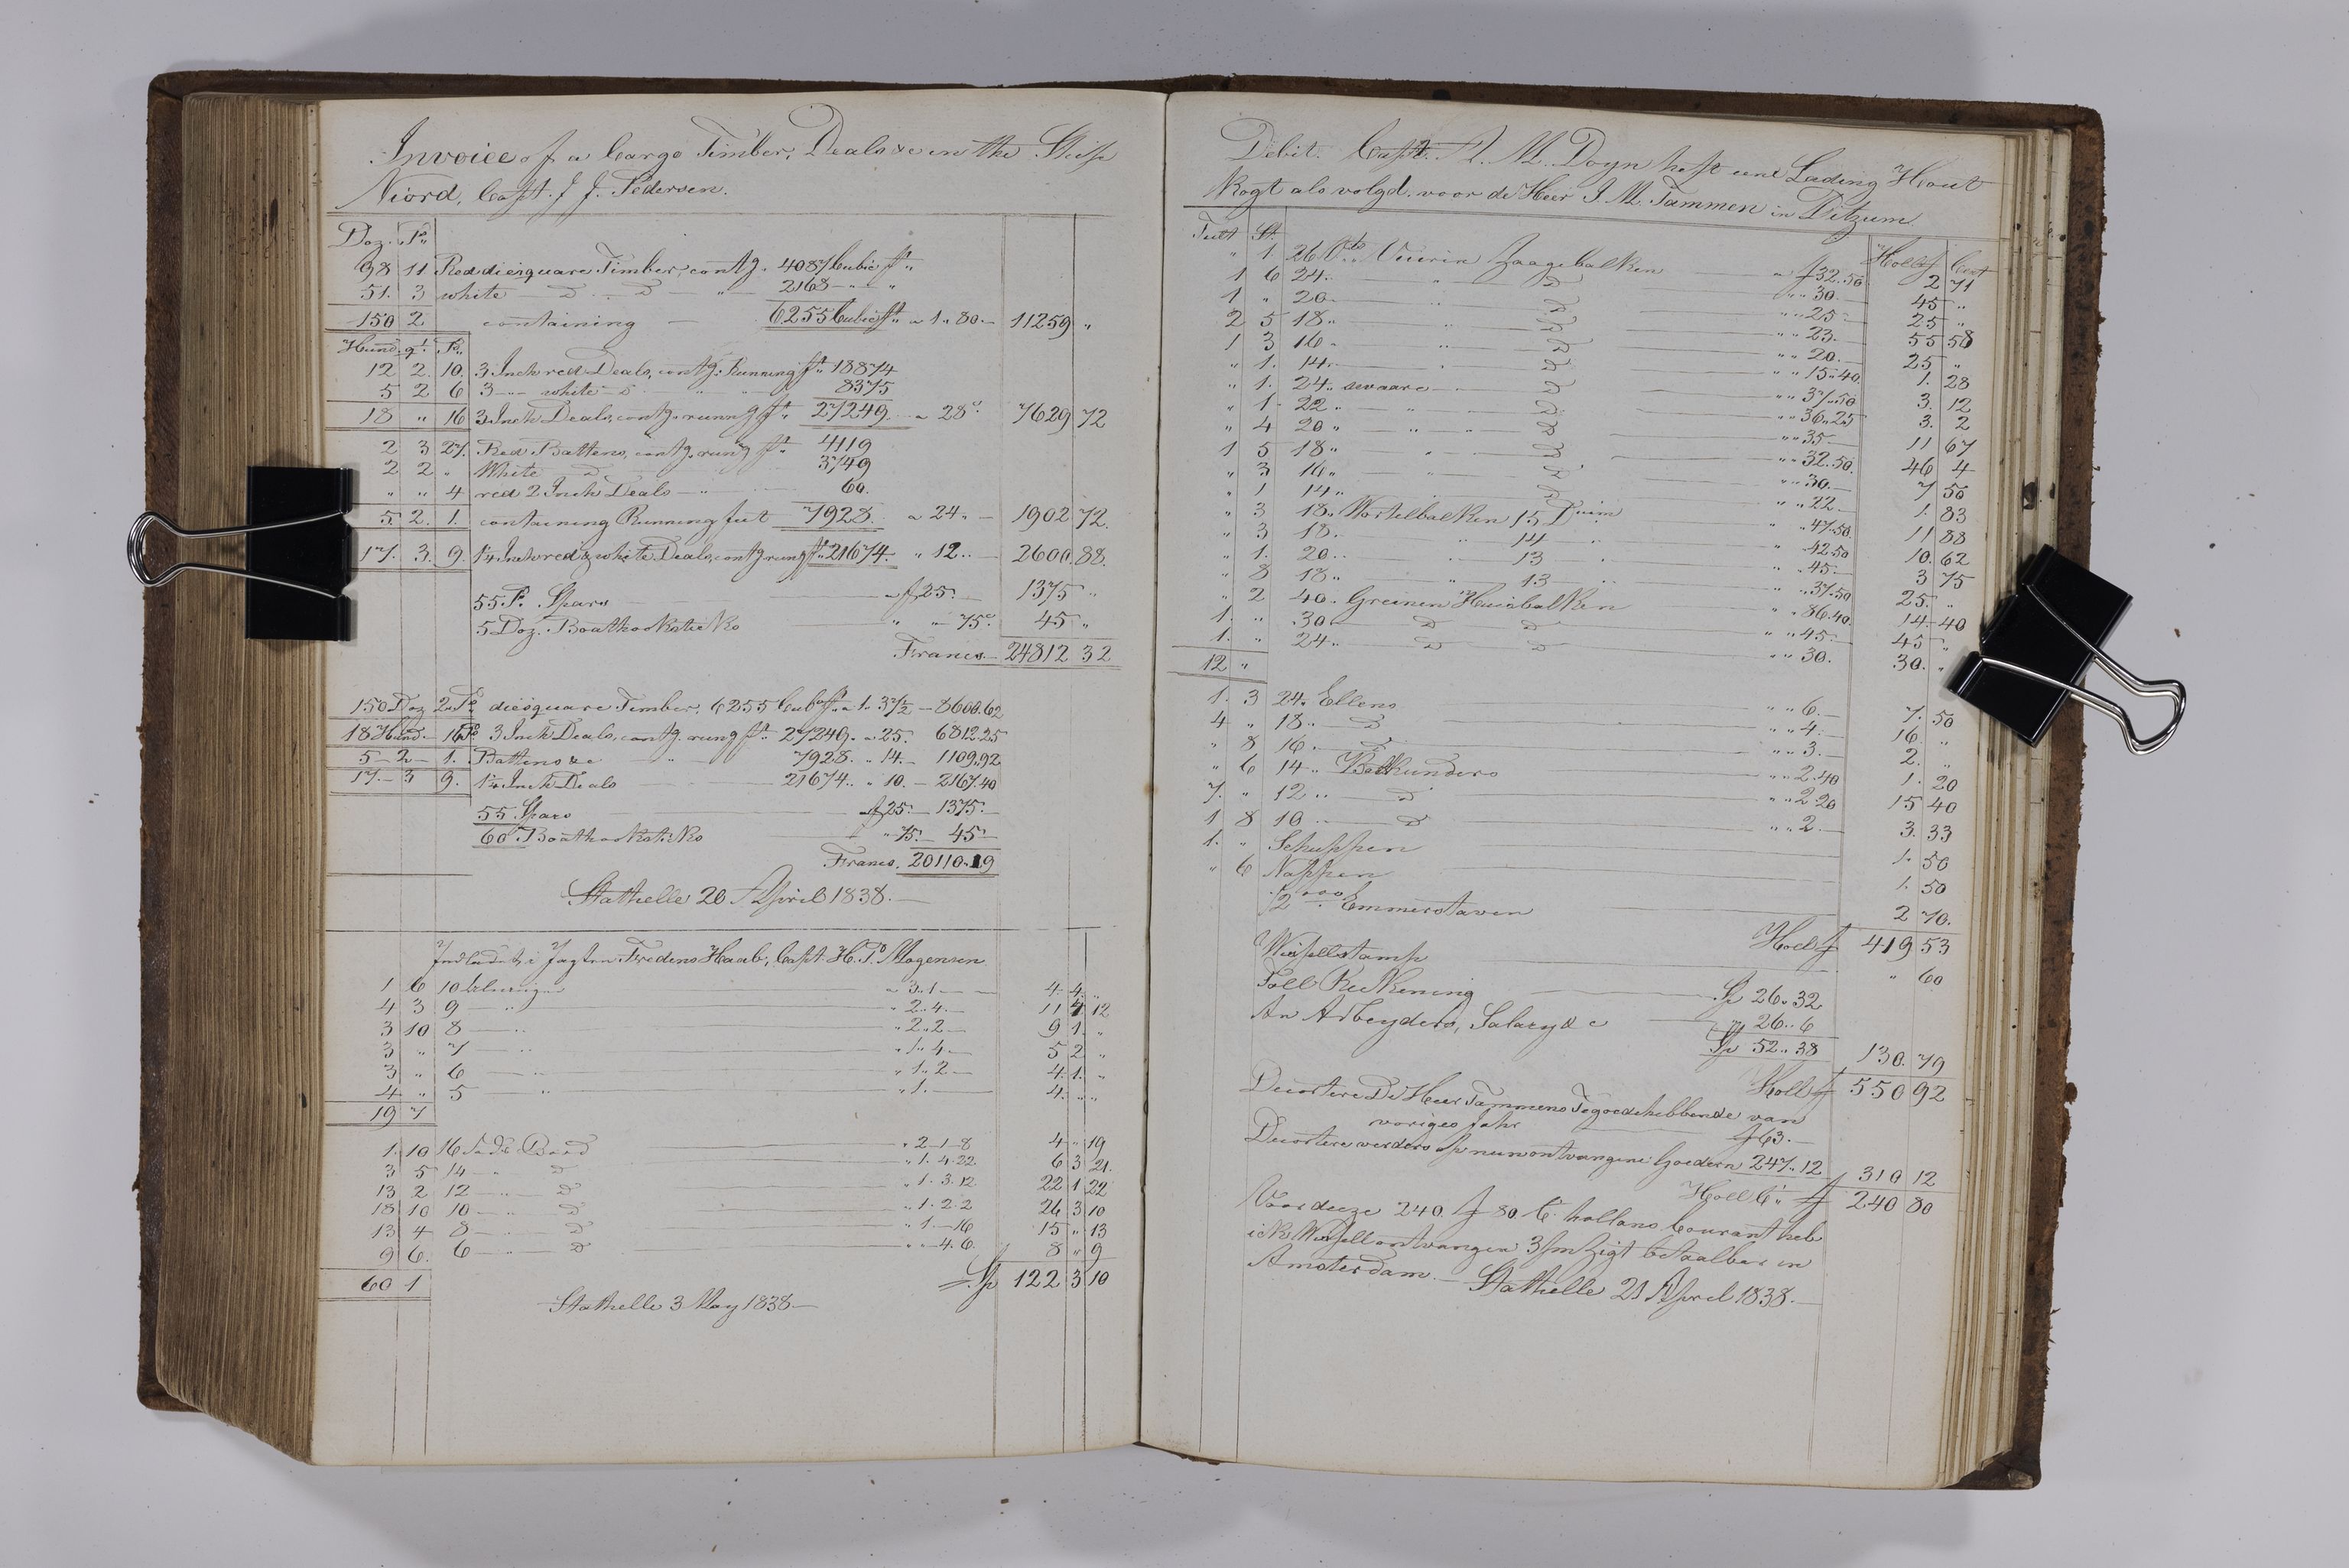 Invoice of a Cargo Timber, Deals &c in the Ship
Niord, Capt. J J. Pedersen.
Doz. Ps.
98 11 Red diesquare Timber, contg. 4087 Cubic ft „
51. 3 white — D . D „ 2168 — „ „
150 2 containing — 6255 Cubic ft „ a 1„80 — 11259 „
Hund. qt. Ps.
12 2. 10. 3 Inch red Deals, contg. Running ft „ 18874
5 2 6 3 — „ white — D „ „ 8375
18 „ 16 3 Inch Deals, contg. runng ft „ 27249 a 28c. 7629 72
2 3 27. Red Battens, contg. rung ft 4119
2 2 „ White D 3749
„ „ 4 red 2 Inch Deals — „ 60.
5 2. 1. containing Running feet 7928. a 24 „ — 1902 72.
17. 3. 9. 1¼ Inch red & white Deals, contg rung ft „ 21674. „ 12 „ — 2600. 88.
55 P. Spars — a f 25. — 1375 „
5 Doz. Boathooksticks „ „ 75c. 45 „
Francs. 24812 32
150 Doz 2 Ps. diesquare Timber, 6255 Cub ft „ a 1„ 37½ — 8600.62
18 Hund. — 16 Ps. 3 Inch Deals, contg. rung ft „ 27249. „ 25. 6812.25
5 — 2 — 1. Battens &c „ 7928. „ 14. — 1109.92
17. — 3 9. 1¼ Inch Deals — 21674. „ 10. — 2167.40
55 Spars — a f 25. 1375. —
60 „ Boathooksticks „ 75. 45. —
Francs. 20110.19
Stathelle 20 April 1838. —
Indladet i Jagten Fredens Haab, Capt. H. P. Mogensen
1 6 10 a 3. 1 — 4. 4. „
4 3 9 — „ „ 2. 4. — 11 4 12
3 10 8 — „ „ 2. 2 — 9 1 „
3 „ 7 — „ „ 1. 4 — 5 2 „
3 „ 6 — „ „ 1. 2. — 4. 1. „
4 „ 5 „ „ 1. — 4. „ „
19 7
1. 10 16 Bord „ 2 — 1 — 8 4 „ 19
3 5 14 — „ D „ 1. 4. 22 6 3 21.
13 2 12 — „ D „ 1. 3. 12 22 1 22
15 10 10 — „ D „ 1. 2. 2 26 3 10
13 4 8 — „ D „ 1 — 16 15 „ 13
9 6. 6 — „ D „ — 4. 6. 8 „ 9
60 1 Sp 122 3 10
Stathelle 3 May 1838 —
Debit. Capt. A. M. Doyn heft een Lading Hout
Kogt als volgd. voor de Heer I. M. Tammen in Ditzum
Tult St. Holl f Cent
„ 1. 26 Vts. Vuerin Zaagebalken a f 32.50 2 71
1 6 24 „ „ D „ „ 30. — 45 „
1 „ 20 „ D „ „ 25 — 25 „
2 5 18 „ „ D „ „ 23. — 55 58
1 3 16 „ „ D „ „ 20. — 25 „
„ 1. 14 „ „ D „ „ 15.40. 1. 28
„ 1. 24 „ D „ „ 37.50 3. 12
„ 1 22 „ „ D „ „ 36.25 3. 2
„ 4 20 „ „ D „ „ 35 — 11 67
1 5 18 „ „ D „ „ 32.50. 46 4
„ 3 16 „ „ D „ „ 30. — 7 50
„ 1 14 „ D „ „ 22. — 1. 83
„ 3 18 „ Wortelbalken 15 Duim „ „ 47.50. 11 88
„ 3 18. „ 14 „ „ 42.50 10. 62
„ 1. 20 „ „ 13 „ „ 45 — 3 75
„ 8 18 „ „ 13 „ „ 37.50 25. „
„ 2 40 „ Greinen Huisbalken „ „ 86.40. 14. 40
1. „ 30 „ D D „ „ 45. — 45 „
1. „ 24 „ D D „ „ 30. 30. „
12 „
1. 3 24 „ Ellens „ „ 6. — 7. 50
4 „ 18 „ D „ „ 4. — 16. „
„ 8 16 „ D „ „ 3. — 2. „
„ 6 14 „ Bolkunders „ „ 2.40 1. 20
7. „ 12 „ D „ „ 2.20 15 40
1 8 10 „ D „ „ 2. — 3. 33
1. „ Schuppen 1. 50
„ 6 Nappen 1. 50
Emmerstaven 2 70.
Holl f 419 53
Wissellstamp „ 60
Toll Reckening — Sp 26. 32
An Arbeyders, Salary & c „ 26. 6
Sp 52. 38 130. 79
Holl f 550 92
Decortere De Heer Tammens Tegoedehebbende van
voriges Jahr f 63. —
Decortere verders op nun ontvangene Goedern 247.12 310 12
Holl Ct. f 240 80
Voor deeze 240. f 80 C. hollans Courant heb
ick Wissell ontvangen 3/m Zigt betaalbar in
Amsterdam. — Stathelle 21 April 1838. —